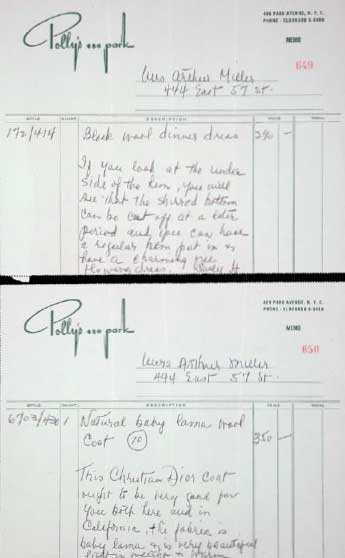 Polly's on park
480 PARK AVENUE, N. Y. C.
PHONE
MEMO
649
Mrs Arthur Miller
444 East 57 St.
STYLE DESCRIPTION
172/414 Black wool dinner dress 290 —
If you look at the under
side of the hem, you will
see that the shirred bottom
can be cut off at a later
period and you can have
a regular hem put in
have a charming
Polly's on park
480 PARK AVENUE, N. Y. C.
PHONE
MEMO
650
Mrs Arthur Miller
444 East 57 St.
STYLE DESCRIPTION
1 Natural baby lama wool 350 —
Coat (10)
This Christian Dior Coat
ought to be very good for
you both here and in
California, the fabric is
baby lama is very beautiful
light in weight